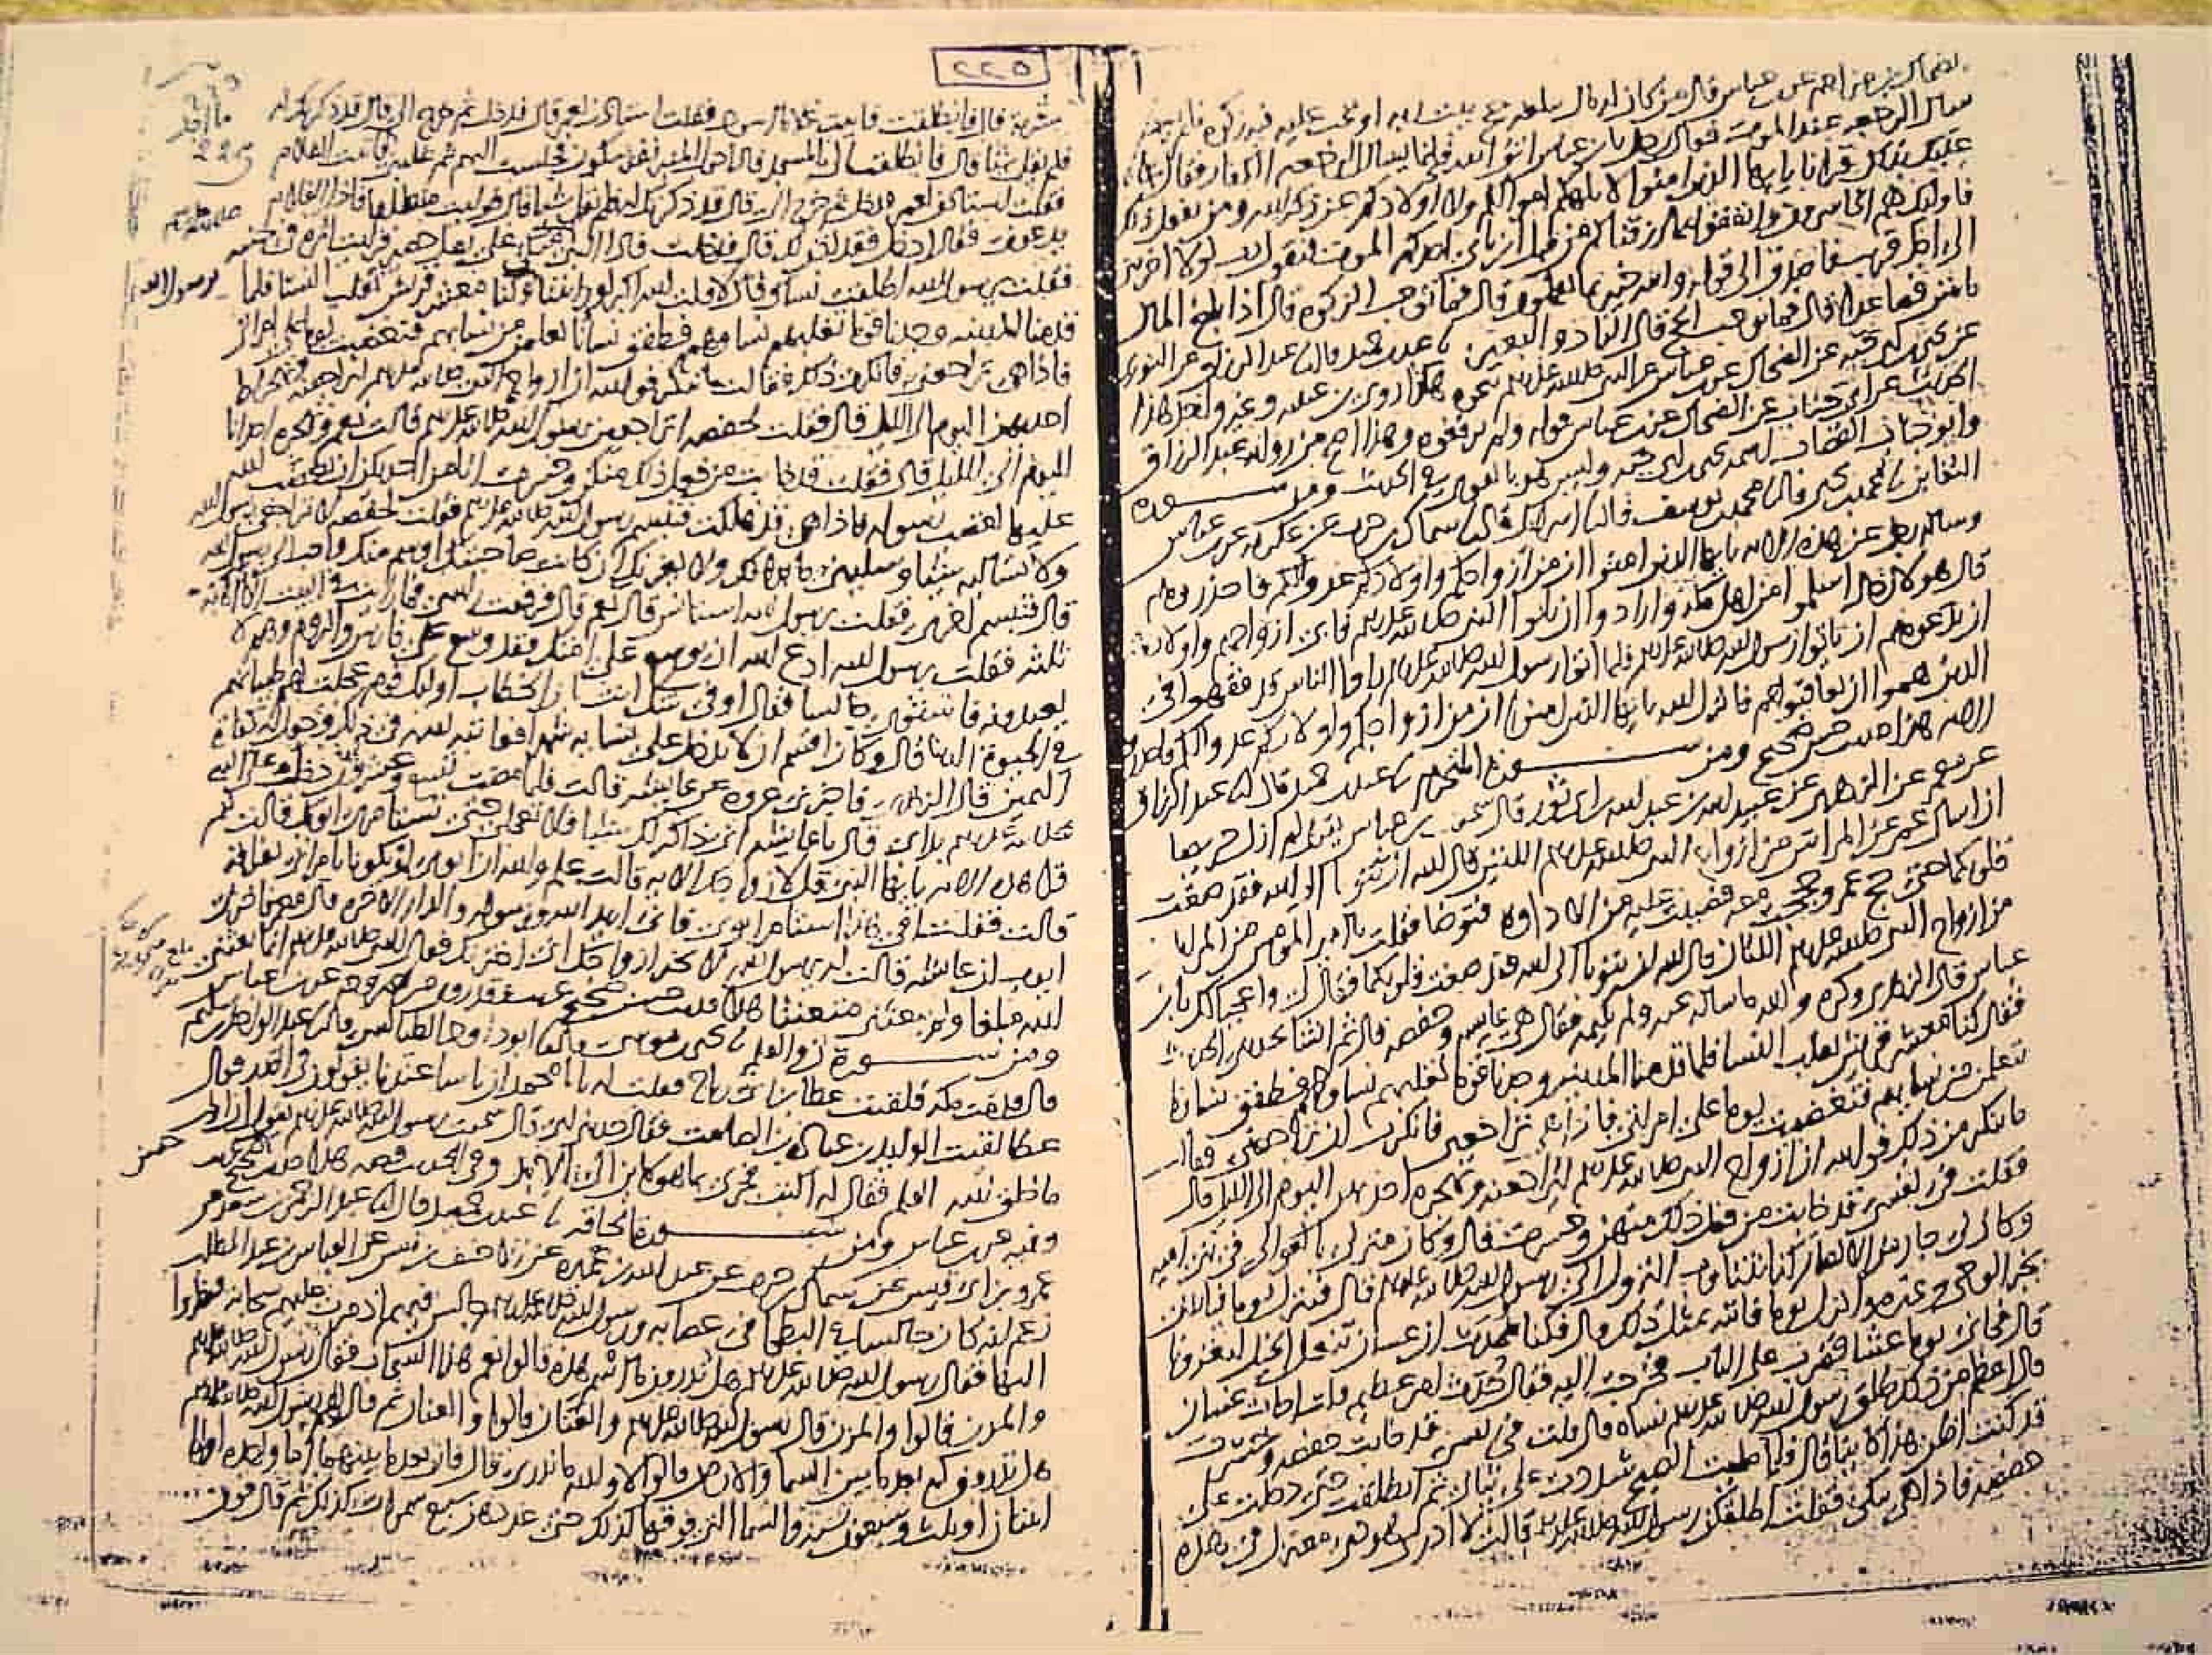 الضحاك بن مزاحم عن ابن عباس قال من كان له مال يبلغه حج بيت ربه او تجب عليه فيه زكوة فلم يفعل
سال الرجعه عند الموت فقال رجل يابن عباس اتق الله فانما يسال الرجعه الكفار فقال
عليك بذلك قرانا يا يها الذين امنوا لا تلهكم اموالكم ولا اولادكم عن ذكر الله ومن يفعل ذلك
فاوليك هم الخاسرون وانفقوا مما رزقناكم من قبل ان ياتي احدكم الموت فيقول رب لولا اخرتني
الى اجل قريب فاصدق الى قوله والله خبير بما تعملون قال فما يوجب الزكوة قال اذا بلغ المال
مايتين فصاعدا قال فما يوجب الحج قال الزاد والبعير عبد بن حميد قال عبد الرزاق عن الثوري
عن يحيى بن ابي حيه عن الضحاك عن ابن عباس عن النبي صلى الله عليه وسلم بنحوه هكذا روى ابن عيينه وغير واحد هذا
الحديث عن ابي جناب عن الضحاك عن ابن عباس قوله ولم يرفعوه وهذا اصح من رواية عبد الرزاق
وابو جناب القصاب اسمه يحيى بن ابي حيه وليس هو بالقوي في الحديث ومن سورة
التغابن محمد بن يحيى قال محمد بن يوسف قال اسرائيل قال سماك بن حرب عن عكرمه عن ابن عباس
وساله رجل عن هذه الايه يا يها الذين امنوا ان من ازواجكم واولادكم عدوا لكم فاحذروهم
قال هولا رجال اسلموا من اهل مكة وارادوا ان ياتوا النبي صلى الله عليه وسلم فابى ازواجهم واولادهم
ان يدعوهم ان ياتوا رسول الله صلى الله عليه وسلم فلما اتوا رسول الله صلى الله عليه وسلم راوا الناس قد فقهوا في
الدين هموا ان يعاقبوهم فانزل الله يا يها الذين امنوا ان من ازواجكم واولادكم عدوا لكم فاحذروهم
الايه هذا حديث حسن صحيح ومن سورة التحريم عبد بن حميد قال عبد الرزاق
عن معمر عن الزهري عن عبيد الله بن عبد الله بن ابي ثور قال سمعت ابن عباس يقول لم ازل حريصا
ان اسال عمر عن المراتين من ازواج النبي صلى الله عليه وسلم اللتين قال الله ان تتوبا الى الله فقد صغت
قلوبكما حتى حج عمر وحججت معه فصببت عليه من الاداوة فتوضا فقلت يا امير المومنين من المراتان
من ازواج النبي صلى الله عليه وسلم اللتان قال الله ان تتوبا الى الله فقد صغت قلوبكما فقال لي واعجبا لك يابن
عباس قال الزهري وكره والله ما ساله عنه ولم يكتمه فقال هي عايشه وحفصه قال ثم انشا يحدثني الحديث
فقال كنا معشر قريش نغلب النسا فلما قدمنا المدينة وجدنا قوما تغلبهم نساوهم فطفق نساونا
يتعلمن من نسايهم فتغضبت يوما على امراتي فاذا هي تراجعني فانكرت ان تراجعني فقالت
ما تنكر من ذلك فوالله ان ازواج النبي صلى الله عليه وسلم ليراجعنه وتهجره احداهن اليوم الى الليل قال
فقلت في نفسي قد خابت من فعل ذلك منهن وخسرت قال وكان منزلي بالعوالي في بني اميه
وكان لي جار من الانصار كنا نتناوب النزول الى رسول الله صلى الله عليه وسلم قال فينزل يوما فياتيني
بخبر الوحي وغيره وانزل يوما فاتيه بمثل ذلك قال فكنا نحدث ان غسان تنعل الخيل لتغزونا
قال فجاني يوما عشا فضرب على الباب فخرجت اليه فقال حدث امر عظيم قلت اجات غسان
قال اعظم من ذلك طلق رسول الله صلى الله عليه وسلم نساه قال قلت في نفسي قد خابت حفصه وخسرت
قد كنت اظن هذا كاينا قال فلما صليت الصبح شددت علي ثيابي ثم انطلقت حتى دخلت على
حفصه فاذا هي تبكي فقلت اطلقكن رسول الله صلى الله عليه وسلم قالت لا ادري هو ذا معتزل في هذه
٢٢٥
مشربة قال فانطلقت فاتيت غلاما اسود فقلت استاذن لعمر قال فدخل ثم خرج الي قال قد ذكرتك له
فلم يقل شيئا قال فانطلقت الى المسجد فاذا حول المنبر نفر يبكون فجلست اليهم ثم غلبني فاتيت الغلام
فقلت استاذن لعمر فدخل ثم خرج الي قال قد ذكرتك له فلم يقل شيئا قال فوليت منطلقا فاذا الغلام
يدعوني فقال ادخل فقد اذن لك قال فدخلت فاذا النبي متكئ على حصير فرايت اثره في جنبه
فقلت يرسول الله اطلقت نساك قال لا قلت الله اكبر لو رايتنا وكنا معشر قريش نغلب النسا فلما
قدمنا المدينه وجدنا قوما تغلبهم نساوهم فطفق نسانا يتعلمن من نسايهم فتغضبت يوما على امراتي
فاذا هي تراجعني فانكرت ذلك فقالت ما تنكر فوالله ان ازواج النبي صلى الله عليه وسلم ليراجعنه وتهجره
احداهن اليوم الى الليل قال فقلت لحفصه اتراجعين رسول الله صلى الله عليه وسلم قالت نعم وتهجره احدانا
اليوم الى الليل قال فقلت قد خابت من فعل ذلك منكن وخسرت اتامن احداكن ان يغضب الله
عليها لغضب رسوله فاذا هي قد هلكت فتبسم رسول الله صلى الله عليه وسلم فقلت لحفصه لا تراجعي رسول الله
ولا تساليه شيئا وسليني ما بدا لك ولا يغرنك ان كانت صاحبتك اوسم منك واحب الى رسول الله
قال فتبسم اخرى فقلت يرسول الله استانس قال نعم قال فرفعت راسي فما رايت في البيت الا اهبة
ثلثة فقلت يرسول الله ادع الله ان يوسع على امتك فقد وسع على فارس والروم وهم لا
يعبدونه فاستوى جالسا فقال اوفي شك انت يابن الخطاب اوليك قوم عجلت لهم طيباتهم
في الحيوة الدنيا قال وكان اقسم ان لا يدخل على نسايه شهرا فعاتبه الله في ذلك وجعل له كفارة
اليمين قال الزهري فاخبرني عروه عن عايشه قالت فلما مضت تسع وعشرون دخل علي النبي
صلى الله عليه وسلم بدا بي قال يا عايشه اني ذاكر لك شيئا فلا تعجلي حتى تستامري ابويك قالت ثم
قرا هذه الايه يا يها النبي قل لازواجك الايه قالت علم والله ان ابوي لم يكونا يامراني بفراقه
قالت فقلت افي هذا استامر ابوي فاني اريد الله ورسوله والدار الاخره قال معمر فاخبرني
ايوب ان عايشه قالت له يرسول الله لا تخبر ازواجك اني اخترتك فقال النبي صلى الله عليه وسلم انما بعثني
الله مبلغا ولم يبعثني متعنتا هذا حديث حسن صحيح غريب قد روي من غير وجه عن ابن عباس
ومن سورة ن والقلم يحيى بن موسى قال ابو داود الطيالسي قال عبد الواحد بن سليم
قال قدمت مكه فلقيت عطا بن ابي رباح فقلت له يا با محمد ان ناسا عندنا يقولون في القدر فقال
عطا لقيت الوليد بن عبادة بن الصامت فقال حدثني ابي قال سمعت رسول الله صلى الله عليه وسلم يقول ان اول
ما خلق الله القلم فقال له اكتب فجرى بما هو كاين الى الابد وفي الحديث قصه هذا حديث حسن صحيح غريب
وفيه عن ابن عباس ومن سورة الحاقة عبد بن حميد قال عبد الرحمن بن سعد عن
عمرو بن ابي قيس عن سماك بن حرب عن عبد الله بن عميره عن الاحنف بن قيس عن العباس بن عبد المطلب
زعم انه كان جالسا في البطحا في عصابه ورسول الله صلى الله عليه وسلم جالس فيهم اذ مرت عليهم سحابه فنظروا
اليها فقال رسول الله صلى الله عليه وسلم هل تدرون ما اسم هذه قالوا نعم هذا السحاب فقال رسول الله صلى الله عليه وسلم
والمزن قالوا والمزن قال رسول الله صلى الله عليه وسلم والعنان قالوا والعنان ثم قال لهم رسول الله صلى الله عليه وسلم
هل تدرون كم بعد ما بين السما والارض قالوا لا والله ما ندري قال فان بعد ما بينهما اما واحده واما
اثنتان او ثلث وسبعون سنة والسما التي فوقها كذلك حتى عدهن سبع سموات كذلك ثم قال فوق